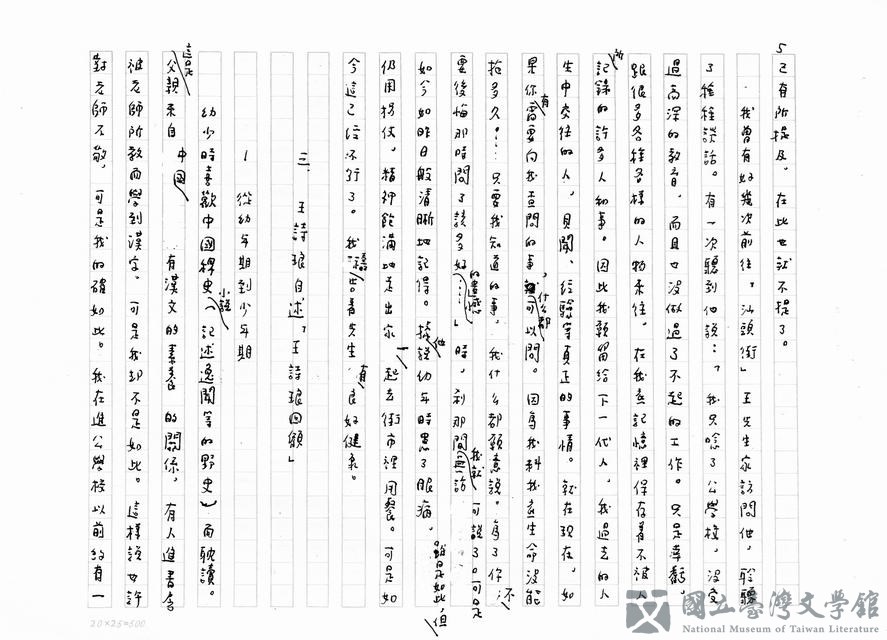 5
已有所提及，在此也就不提了。
我曾有好幾次前往「汕頭街」王先生家訪問他，聆聽
了種種談話。有一次聽到他說：「我只唸了公學校，沒受
過高深的教育，而且也沒做過了不起的工作。只是幸虧，
跟很多各種各樣的人物來往，在我這記憶裡保存着不被人
所記錄的許多人和事。因此我願留給下一代人，我過去的人
生中交往的人，見聞、經驗等真正的事情。就在現在，如
果你有需要向我查問的事，什么都可以問。因為我料我這生命沒能
拖多久……只要我知道的事，我什么都願意說。為了你不
要後悔那時問了該多好的遺憾……」時，剎那間我就無話可說了。可是
如今如昨日般清晰地記得。據他說幼年時患了眼病，雖是如此，但
仍用拐杖，精神飽滿地走出家，一起去街市裡用餐。可是如
今這已經不行了。我禱告着先生有良好健康。
三、王詩琅自述「王詩琅回顧」
1 從幼年期到少年期
幼少時喜歡中國稗史小說（記述逸聞等的野史）而耽讀。
這是父親來自中國有漢文的素養的關係，有人進書房
被老師所教而學到漢字。可是我卻不是如此。這樣說也許
對老師不敬，可是我的確如此。我在進公學校以前約有一
20×25=500
國立臺灣文學館
National Museum of Taiwan Literature